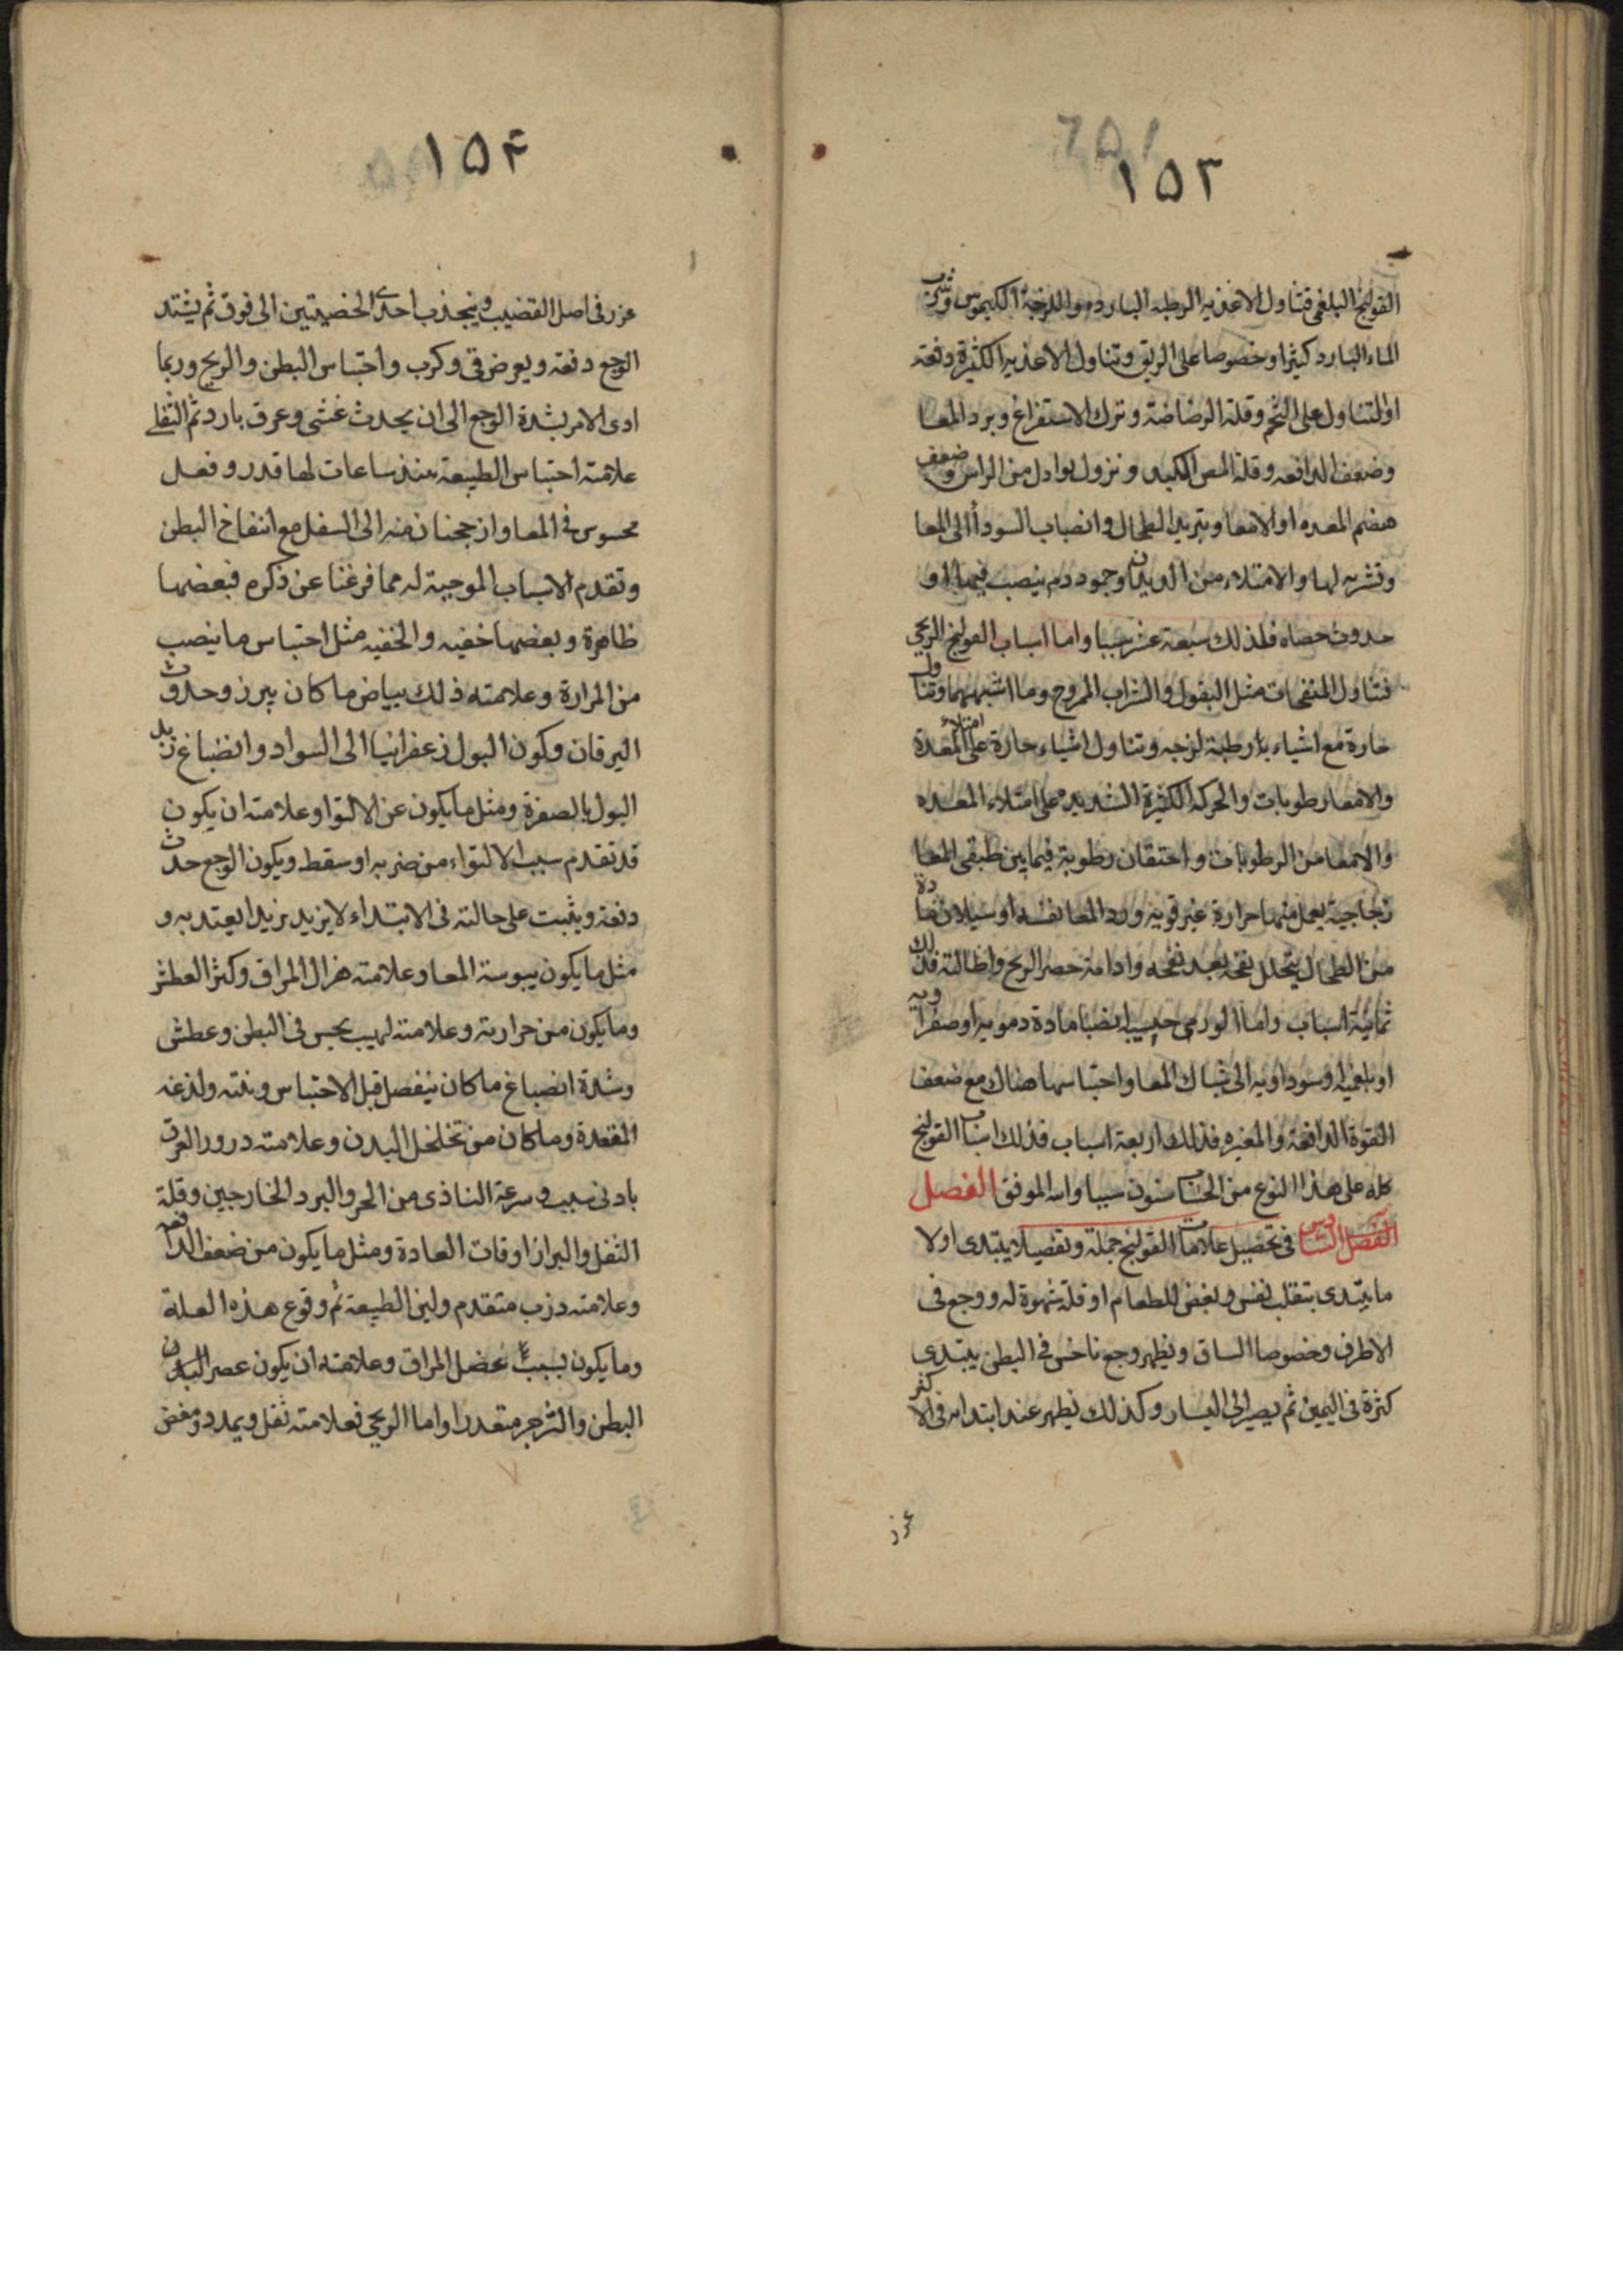 ١٥٣
القولنج البلغمى فتناول الاغذيه الرطبه البارده واللزجة الكيموس وشرب
الماء البارد كثيرا وخصوصا على الريق وتناول الاغذيه الكثيرة دفعة
او التناول على التخم وقلة الرضاضة وترك الاستفراغ وبرد المعا
وضعف الدافعه وقلة المص الكبد ونزول نوازل من الراس وضعف
هضم المعده او الامعا وتبريد الطحال وانصباب السودأ الى المعا
وتشربه لها والامتلاء من الديدان وجمود دم ينصب فيها او
حدوث حصاه فلذلك سبعة عشر سببا واما اسباب القولنج الريحى
فتناول المنفخات مثل البقول والشراب الممزوج وما اشبههما وتناول
حارة مع اشياء رطبة لزجه وتناول اشياء حارة على امتلاء المعدة
والامعا رطوبات والحركة الكثيرة الشديده على امتلاء المعده
والامعا من الرطوبات واحتقان رطوبة فيما بين طبقى المعا
زجاجية يعمل منها حرارة غير قويه وبرد المعا نفسه او سيلان مادة
من الطحال يتحلل نفخه بعد نفخه وادامة حصر الريح واطالته فذلك
ثمانية اسباب واما الورمى انصباب مادة دمويه او صفراويه
او بلغميه او سوداويه الى شباك المعا واحتباسها هناك مع ضعف
القوة الدافعة والمغيره فذلك اربعة اسباب فذلك اسباب القولنج
كله على هذا النوع من الحساب ستون سببا والله الموفق الفصل
الفصل السادس فى تحصيل علامات القولنج جملة وتفصيلا يبتدى اولا
ما يبتدى بتقلب نفس وبغض للطعام او قلة شهوة له ووجع فى
الاطرف وخصوصا الساق ويظهر وجع ناخس فى البطن يبتدى
كثرة فى اليمين ثم يصير الى اليسار وكذلك يظهر عند ابتداء فى الاكثر
غزر
١٥٤
غزر فى اصل القضيب وينجذب احدى الخصيتين الى فوق ثم يشتد
الوجع دفعة ويعرض قى وكرب واحتباس البطن والريح وربما
ادى الامر بشدة الوجع الى ان يحدث غشى وعرق بارد ثم الثفلى
علامته احتباس الطبيعة منذ ساعات لها قدر وفعل
محسوس فى المعا وانزججنان منه الى السفل مع انتفاخ البطن
وتقدم الاسباب الموجبة له مما فرغنا عن ذكره فبعضها
ظاهرة وبعضها خفيه والخفيه مثل احتباس ما ينصب
من المرارة وعلامته ذلك بياض ما كان يبرز وحدوث
اليرقان وكون البول زعفرانيا الى السواد وانصباغ زبد
البول بالصفرة ومثل ما يكون عن الالتوا وعلامته ان يكون
قد تقدم سبب الالتواء من ضربه او سقط ويكون الوجع حدث
دفعة ويثبت على حالته فى الابتداء لا يزيد تزيدا يعتد به و
مثل ما يكون يبوسة المعا وعلامته هزال المراق وكثر العطش
وما يكون من حرارته وعلامته لهيب يحس فى البطن وعطش
وشدة انصباغ ما كان ينفصل قبل الاحتباس ونتنه ولذعه
المقعدة وما كان من تخلخل البدن وعلامته درور العرق
بادنى سبب وسرعة التاذى من الحر والبرد الخارجين وقلة
الثفل والبراز اوقات العادة ومثل ما يكون من ضعف الدافعه
وعلامته ذرب متقدم ولين الطبيعة ثم وقوع هذه العلة
وما يكون بسبب عضل المراق وعلامته ان يكون عصر البدن
البطن والتزحر متعدرا واما الريحى فعلامته ثقل ويمدد ومغص